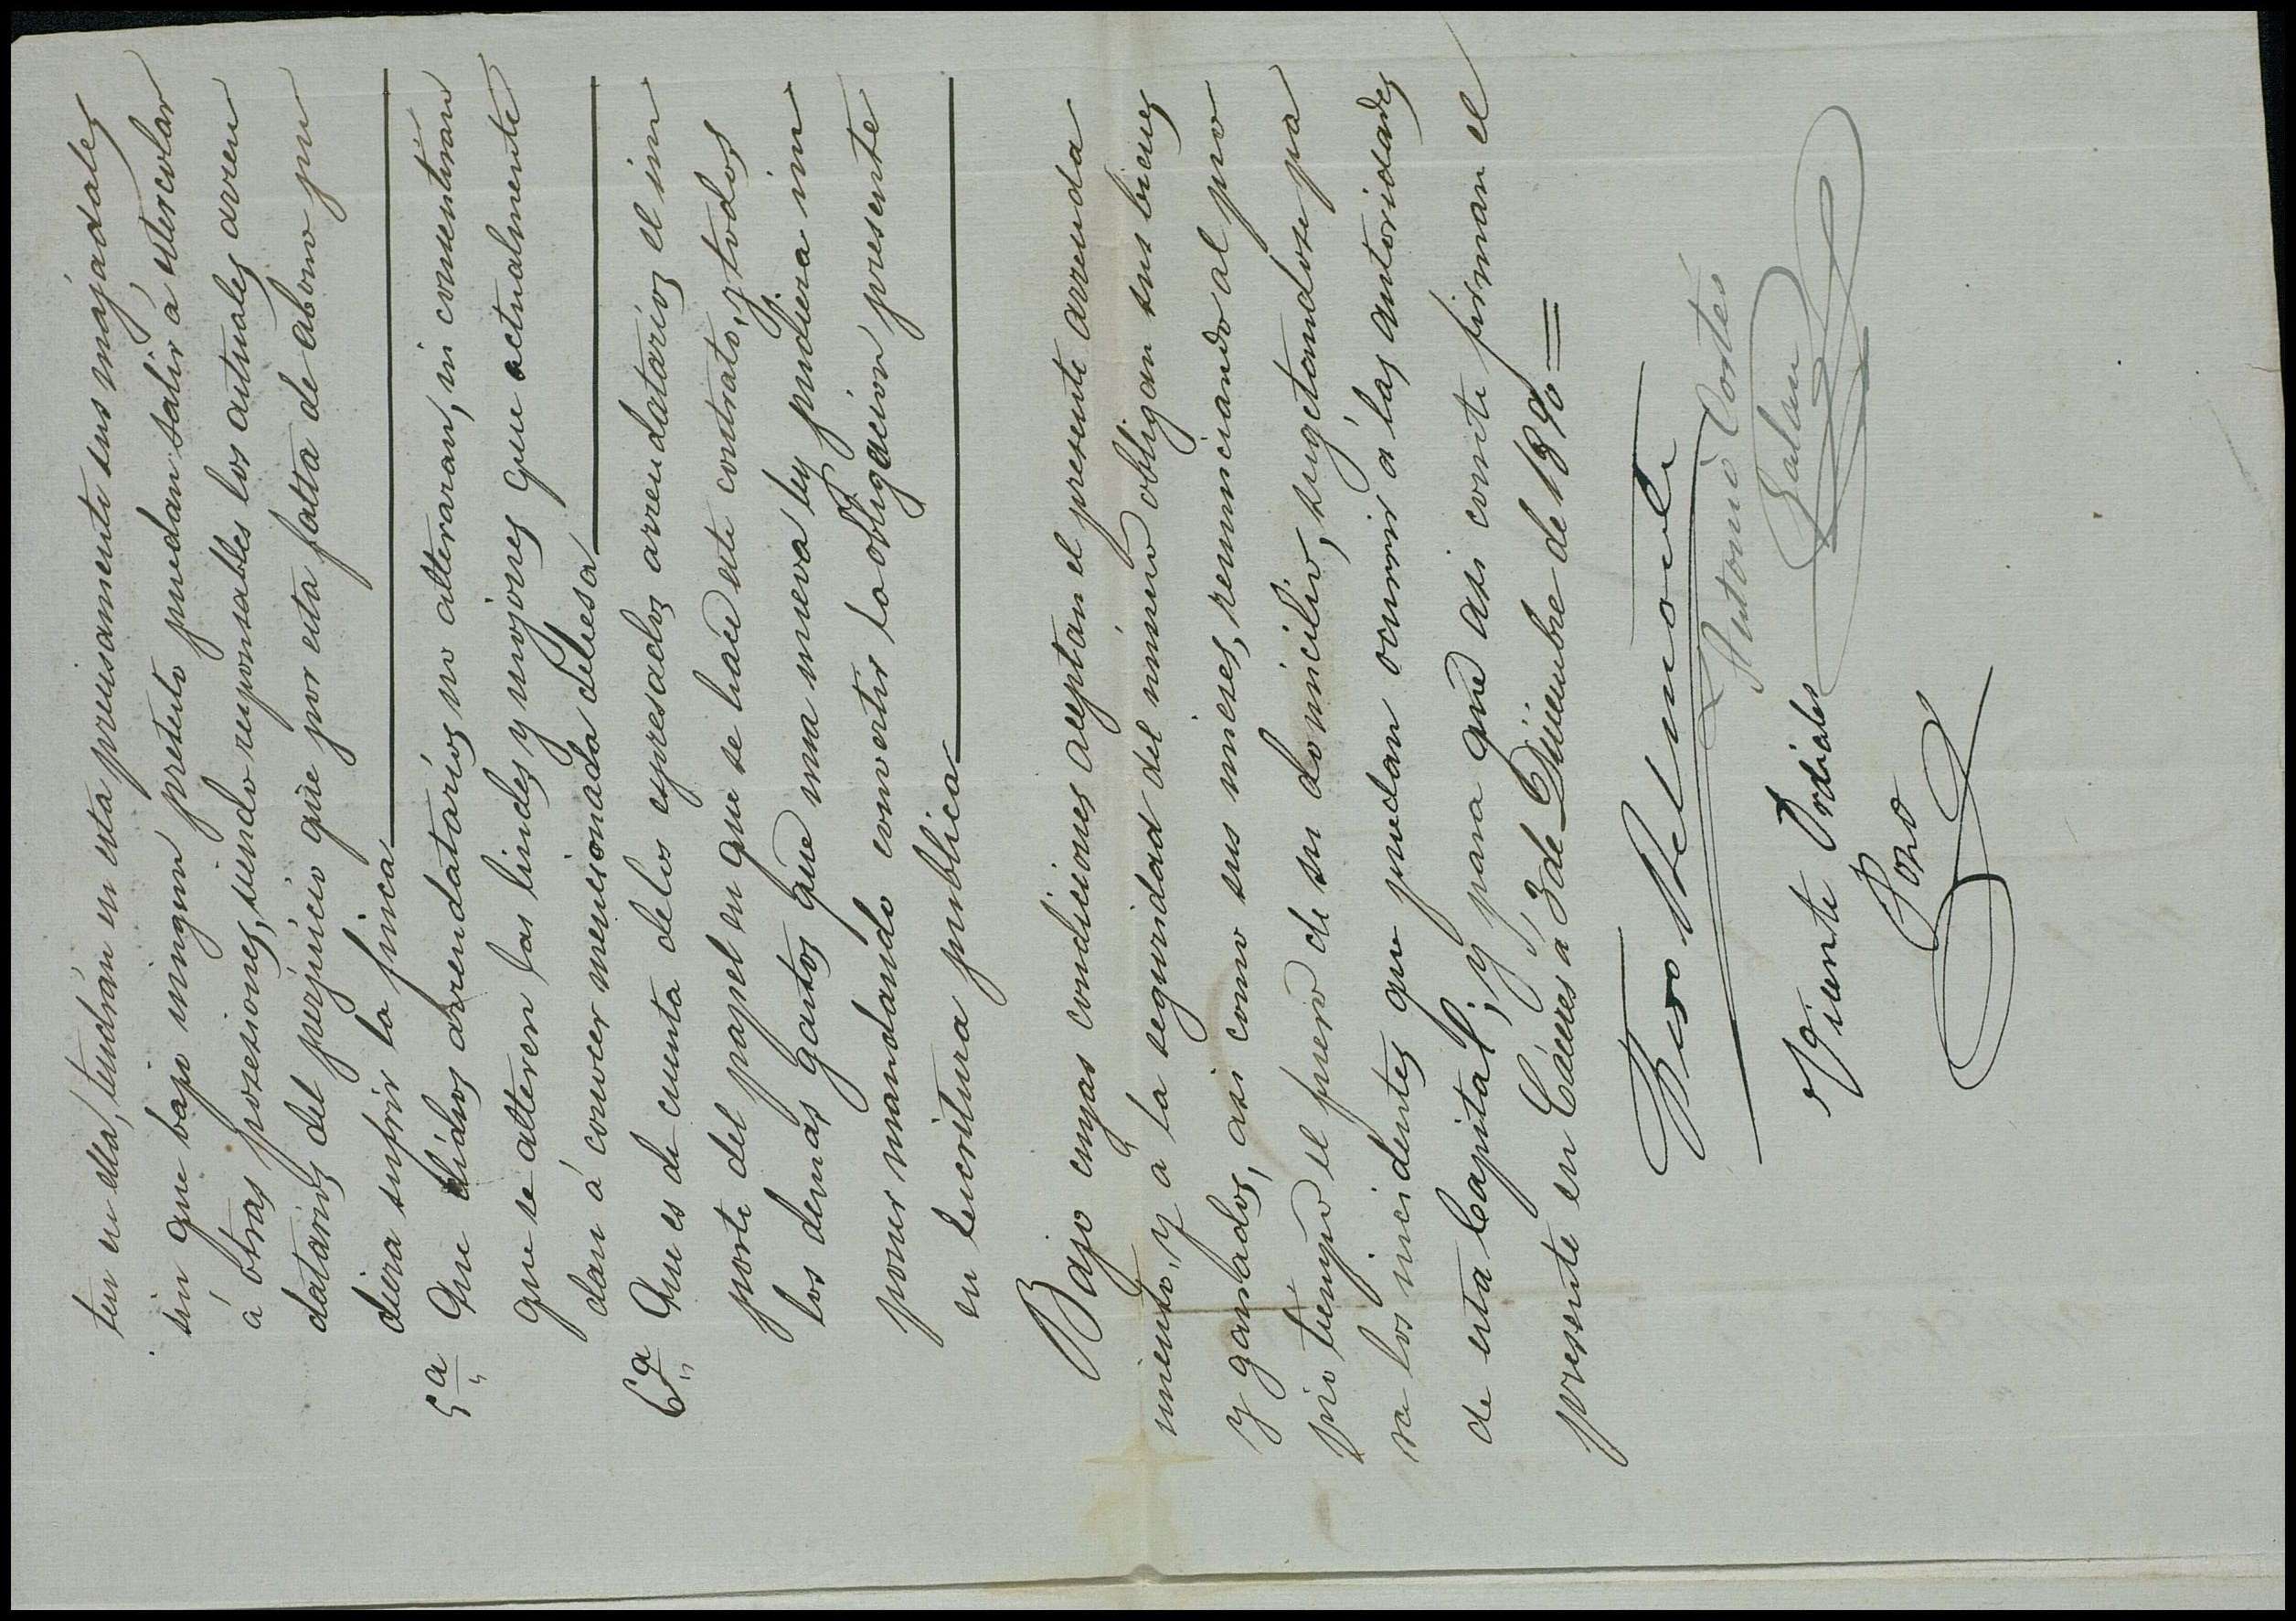 ten en ella, tendrán en esta precisamente sus majadales
sin que bajo ningun pretesto puedan salir á estercolar
á otras posesiones, siendo responsables los actuales arren
datarios del perjuicio que por esta falta de abono pu
diera sufrir la finca
5ª Que dichos arrendatarios no alteraran, ni consentiran
que se alteren las lindes y mojones que actualmente
dan á conocer mencionada dehesa
6ª Que es de cuenta de los espresados arrendatarios el im
porte del papel en que se hace este contrato, y todos
los demas gastos que una nueva ley pudiera im
poner mandando convertir la obligacion presente
en Escritura publica
Bajo cuyas condiciones aceptan el presente arrenda
miento, y á la seguridad del mismo obligan sus bienes
y ganados, asi como sus mieses, renunciando al pro
pio tiempo el fuero de su domicilio, sugetandose pa
ra los incidentes que puedan ocurrir á las autoridades
de esta Capital; y para que asi conste firman el
presente en Cáceres á 3 de Diciembre de 1890
Antonio Cortés
Galan
Vicente Ordiales
Pozo